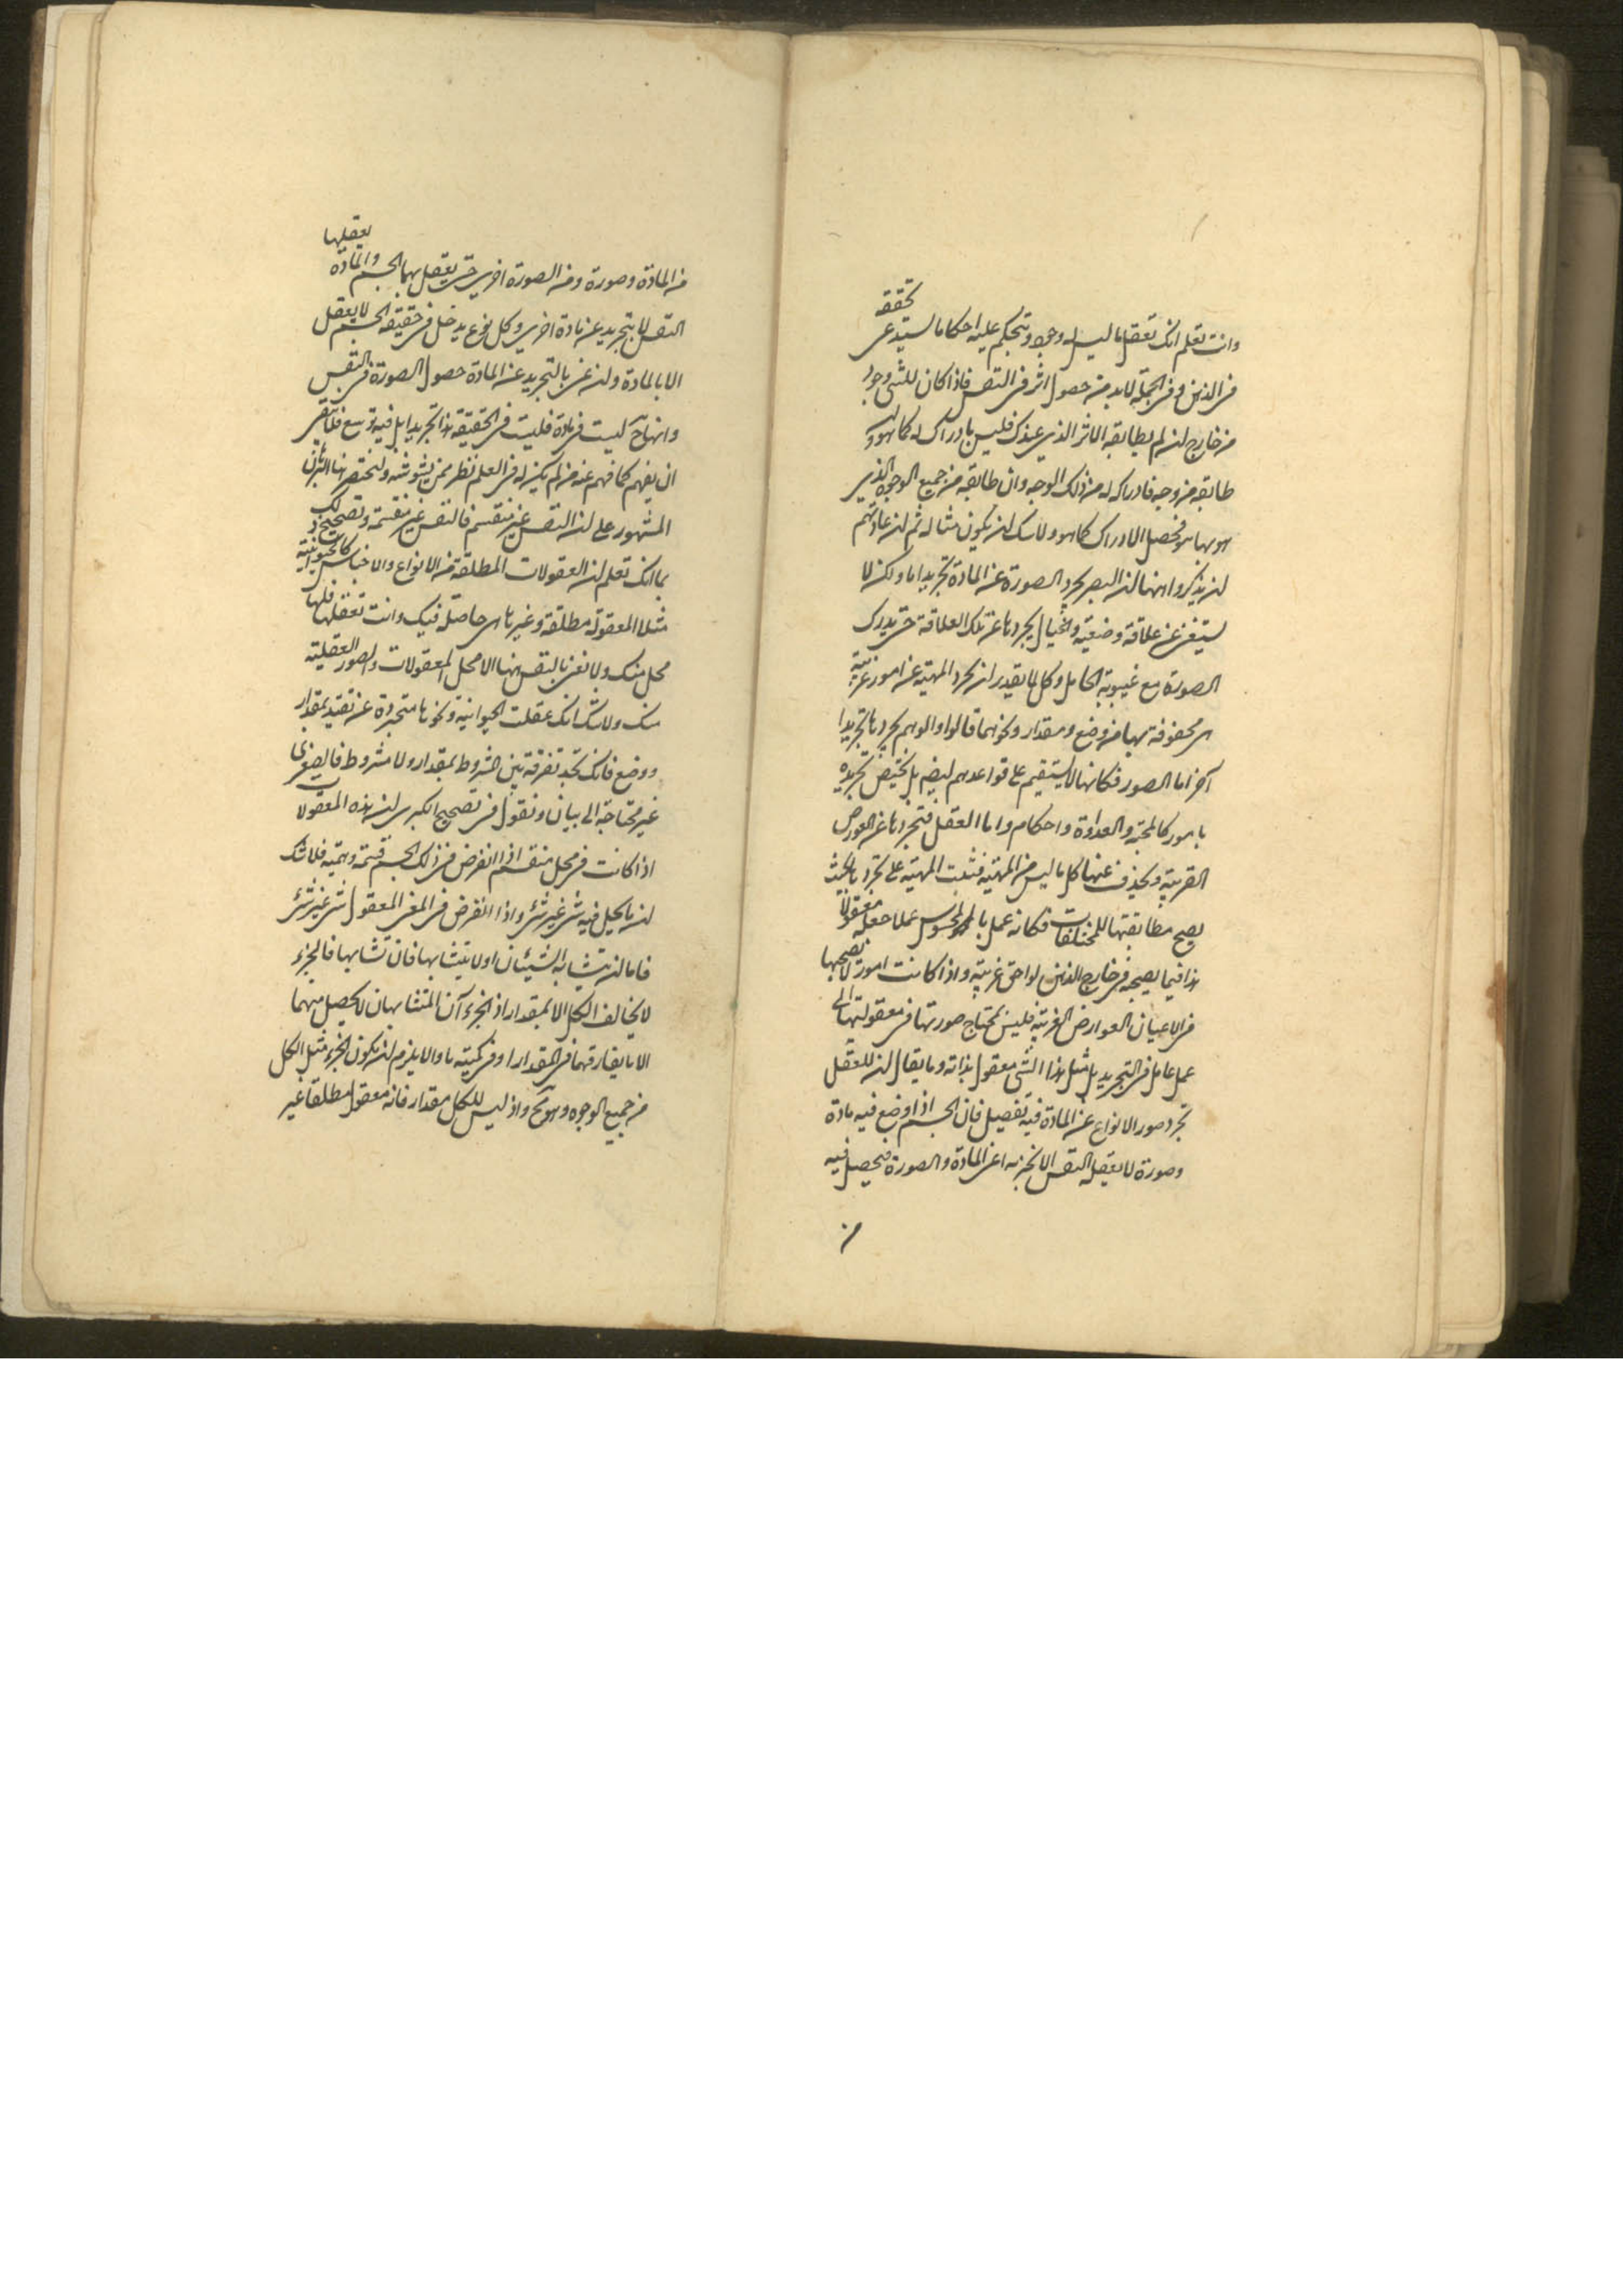 وانت تعلم انك تعقل ما ليس له وجود وتحكم عليه احكاما يستدعى تحققه
فى الذهن وفى الجملة لابد من حصول اثر فى النفس فاذا كان للشى وجود
من خارج ان لم يطابقه الاثر الذى عندك فليس بادراك له كما هو وان
طابقه من وجه فادراكه له من ذلك الوجه وان طابقه من جميع الوجوه الذى
هو بها هو فحصل الادراك كما هو ولاشك ان يكون مثاله ثم ان عادتهم
ان يذكروا ههنا ان البصر يجرد الصورة عن المادة تجريدا ما ولكن لا
يستغنى عن علاقة وضعية والخيال يجردها عن تلك العلاقة حتى يدرك
الصورة مع غيبوبة الحامل وكل لا يقدر ان يجرد المهية عن امور غريبة
هى محفوفة بها من وضع ومقدار ونحوهما قالوا والوهم يجردها تجريدا
آخر اما الصور فكانها لا يستقيم على قواعدهم ايضا بل يختص تجريده
بامور كالمحبة والعداوة واحكام واما العقل فتجردها عن العوارض
الغريبة ويحذف عنها كل ما ليس من المهية فتثبت المهية على تجردها بحيث
يصح مطابقتها للمختلفات فكانه عمل بالمحسوس عملا جعله معقولا
هذا فيما يصحبه فى خارج الذهن لواحق غريبة واذا كانت امور لا يصحبها
فى الاعيان العوارض الغريبة فليس يحتاج صورتها فى معقوليتها الى
عمل عامل فى التجريد بل مثل هذا الشى معقول بذاته وما يقال ان للعقل
تجرد صور الانواع عن المادة فيه تفصيل فان الجسم اذا وضع فيه مادة
وصورة لا يعقله النفس الا بجزئيه اعنى المادة والصورة فيحصل فيه
من
من المادة وصورة ومن الصورة اخرى حتى يعقل بهما الجسم والمادة يعقلها
النفس لا بتجريد عن مادة اخرى وكل نوع يدخل فى حقيقته الجسم لا يعقل
الا بالمادة وان عنى بالتجريد عن المادة حصول الصورة فى النفس
وانها ح ليست فى مادة فليست فى الحقيقة هذا تجريدا بل فيه توسع فلا ينبغى
ان يفهم كما فهم عنه من لم يكن له فى العلم نظر ممن يشوشه ولنختصر هنا البرهان
المشهور على ان النفس غير منقسم فالنفس غير منقسمة وتصحيح ذلك
بما انك تعلم ان المعقولات المطلقة من الانواع والاجناس كالحيوانية
مثلا المعقولة مطلقة وغيرها هى حاصلة فيك وانت تعقلها فلها
محل منك ولا نعنى بالنفس ههنا الا محل المعقولات والصور العقلية
منك ولاشك انك عقلت الحيوانية ونحوها متجردة عن تقيد بمقدار
ووضع فانك تجد تفرقة بين المشروط بمقدار ولا مشروط فالصغرى
غير محتاجة الى بيان ونقول فى تصحيح الكبرى ان هذه المعقولات
اذا كانت فى محل منقسم اذا انفرض فى ذلك الجسم قسمة وهمية فلا شك
ان ما يحل فيه شى غير شى واذا انفرض فى المعنى المعقول شى غير شى
فاما ان يتشابه الشيئان او لا يتشابها فان تشابها فالجزء
لا يخالف الكل الا بمقدار اذ الجزءآن المتشابهان لا يحصل منهما
الا ما يفارقهما فى المقدار او فى كمية ما والا يلزم ان يكون الجزء مثل الكل
من جميع الوجوه وهو مح واذ ليس للكل مقدار فانه معقول مطلقا غير